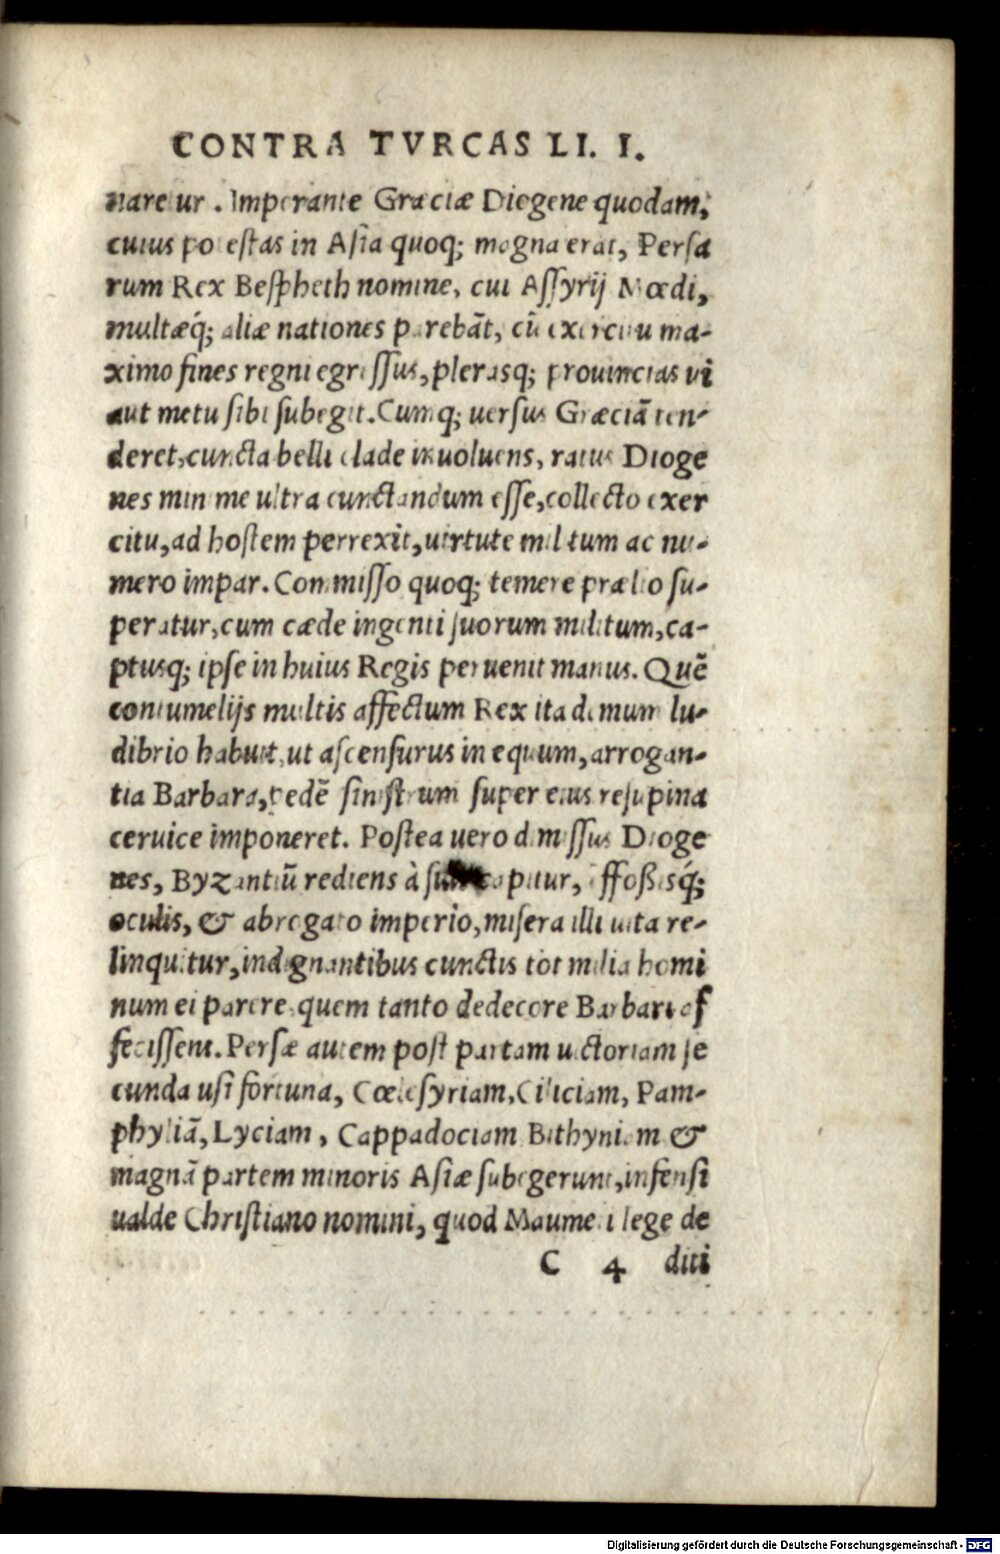 CONTRA TVRCAS LI. I.
naretur. Imperante Graeciæ Diogene quodam,
cuius potestas in Asia quoq; magna erat, Persa
rum Rex Bespheth nomine, cui Assyrij Mœdi,
multæq́; aliæ nationes parebāt, cū exercitu ma-
ximo fines regni egressus, plerasq; prouincias vi
aut metu sibi subegit. Cumq; uersus Græciā ten-
deret, cuncta belli clade inuoluens, ratus Dioge
nes minime ultra cunctandum esse, collecto exer
citu, ad hostem perrexit, uirtute militum ac nu-
mero impar. Commisso quoq; temere prælio su-
peratur, cum cæde ingenti suorum militum, ca-
ptusq; ipse in huius Regis peruenit manus. Quē
contumelijs multis affectum Rex ita demum lu-
dibrio habuit, ut ascensurus in equum, arrogan-
tia Barbara, pedē sinistrum super eius resupina
ceruice imponeret. Postea uero dimissus Dioge
nes, Byzantiū rediens à suis capitur, effoßisq́;
oculis, & abrogato imperio, misera illi uita re-
linquitur, indignantibus cunctis tot milia homi
num ei parere, quem tanto dedecore Barbari af
fecissent. Persæ autem post partam uictoriam se
cunda usi fortuna, Cœlesyriam, Ciliciam, Pam-
phyliā, Lyciam, Cappadociam Bithyniam &
magnā partem minoris Asiæ subegerunt, infensi
ualde Christiano nomini, quod Maumeti lege de
C 4 diti
Digitalisierung gefördert durch die Deutsche Forschungsgemeinschaft - DFG